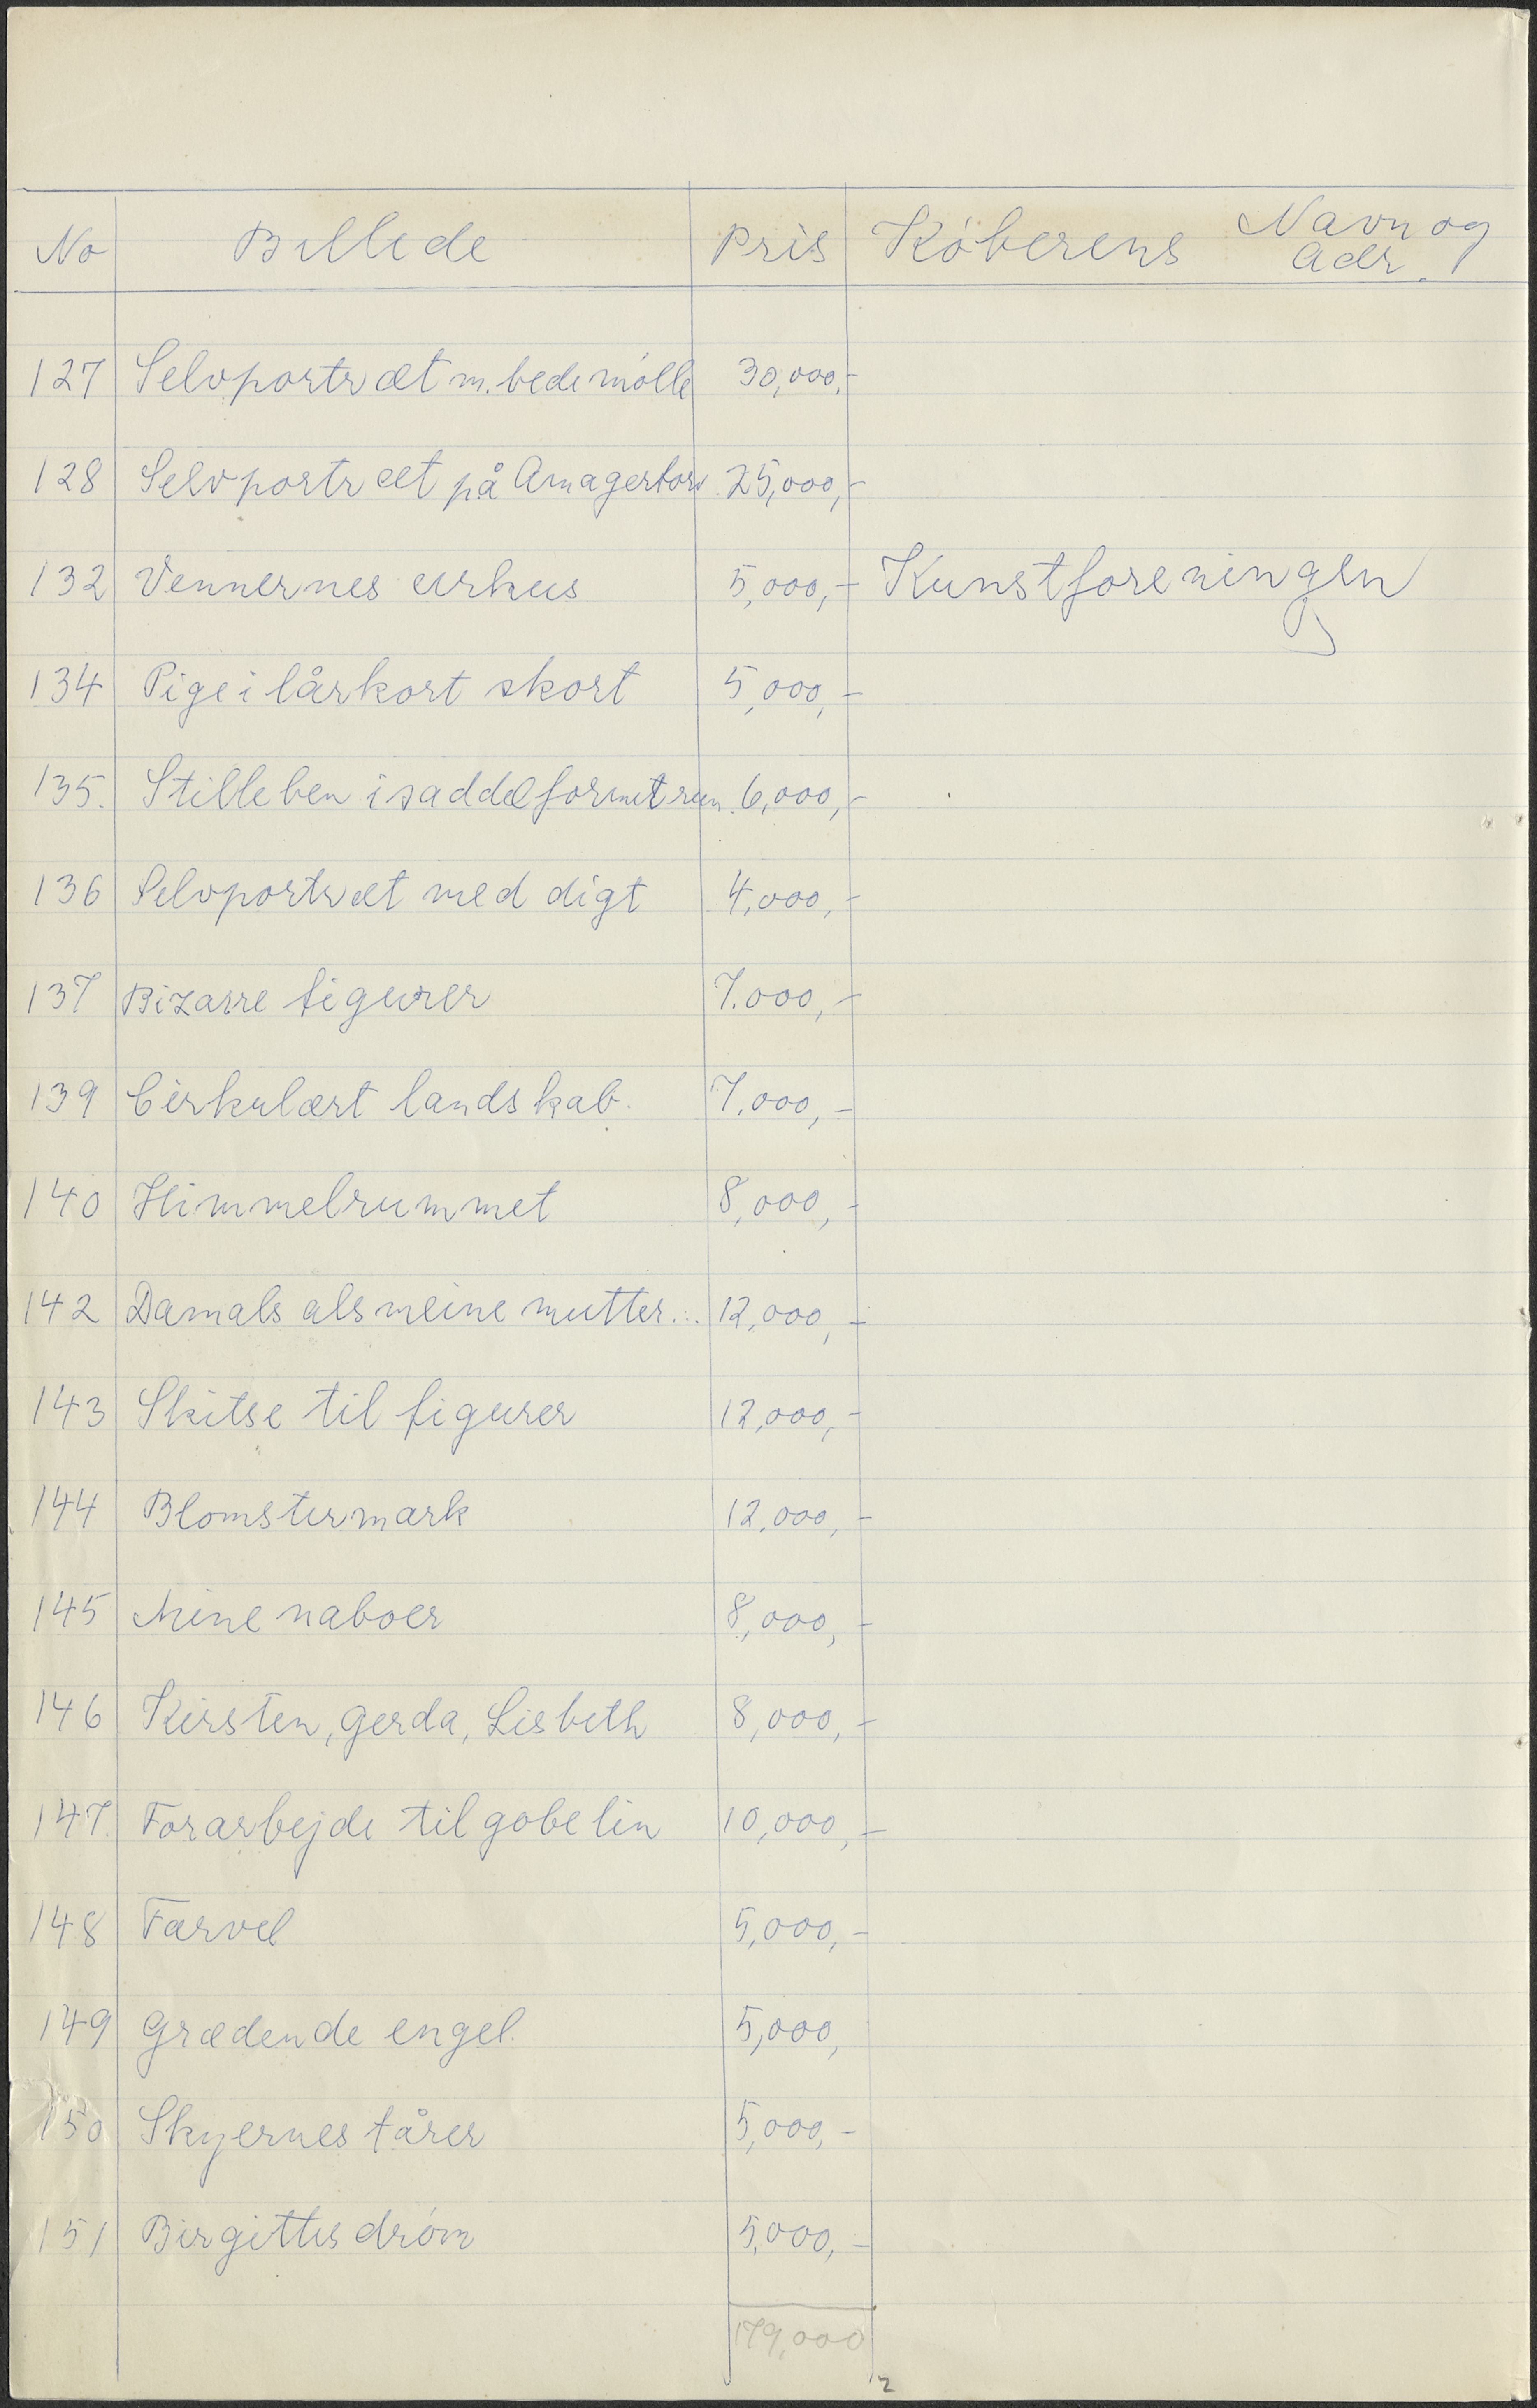 No Billede Pris Køberens Navn og Adr.
127 Selvportræt m. bedemølle 30,000,-
128 Selvportræt på Amagertorv 25,000,-
132 Vennernes cirkus 5,000,- Kunstforeningen
134 Pige i lårkort skort 5,000,-
135. Stilleben i saddelformet rum 6,000,-
136 Selvportræt med digt 4,000,-
137 Bizarre figurer 7.000,-
139 Cirkulært landskab. 7.000,-
140 Himmelrummet 8,000,-
142 Damals als meine mutter... 12,000,-
143 Skitse til figurer 12,000,-
144 Blomstermark 12.000,-
145 Mine naboer 8,000,-
146 Kirsten, Gerda, Lisbeth 8,000,-
147. Forarbejde til gobelin 10,000,-
148 Farvel 5,000,-
149 Grædende engel. 5,000,
150 Skyernes tårer 5,000,-
151 Birgittes drøm 5,000,-
179,000
2